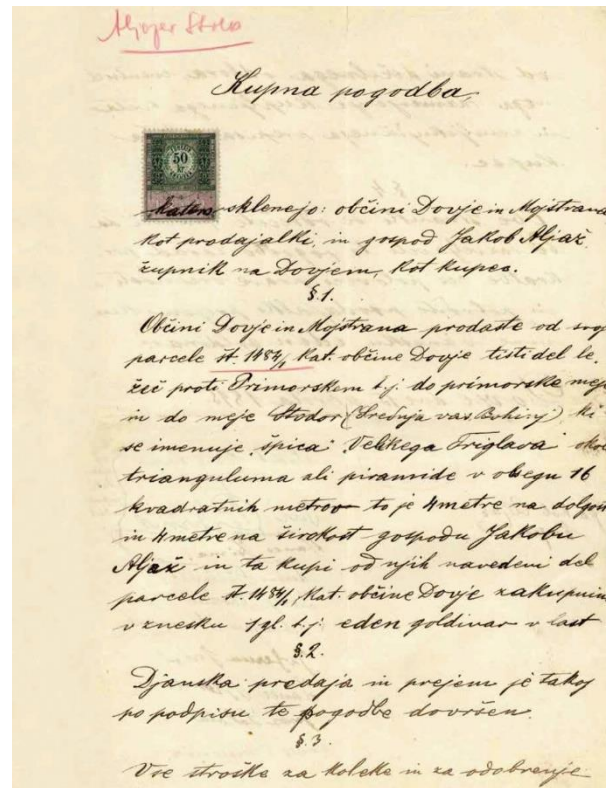 Aljažev Stolp
Kupna pogodba,
50
katero sklenejo: občini Dovje in Mojstrana
kot prodajalki, in gospod Jakob Aljaž
župnik na Dovjem, kot kupec.
§.1.
Občini Dovje in Mojstrana prodaste od svoje
parcele št. 1484/1 kat. občine Dovje tisti del le,
žeč proti Primorskem t.j. do primorske meje
in do meje Studor (Srednja vas Bohinj) ki
se imenuje "špica" Velikega Triglava" okol
trianguluma ali piramide v obsegu 16
kvadratnih metrov to je 4 metre na dolgost
in 4 metre na širokost gospodu Jakobu
Aljaž in ta kupi od njih navedeni del
parcele št. 1484/1 kat. občine Dovje za kupnino
v znesku 1 gl. t.j. eden goldinar v last
§.2.
Djanska predaja in prejem je takoj
po podpisu te pogodbe dovršen.
§.3.
Vse stroške za koleke in za odobrenje